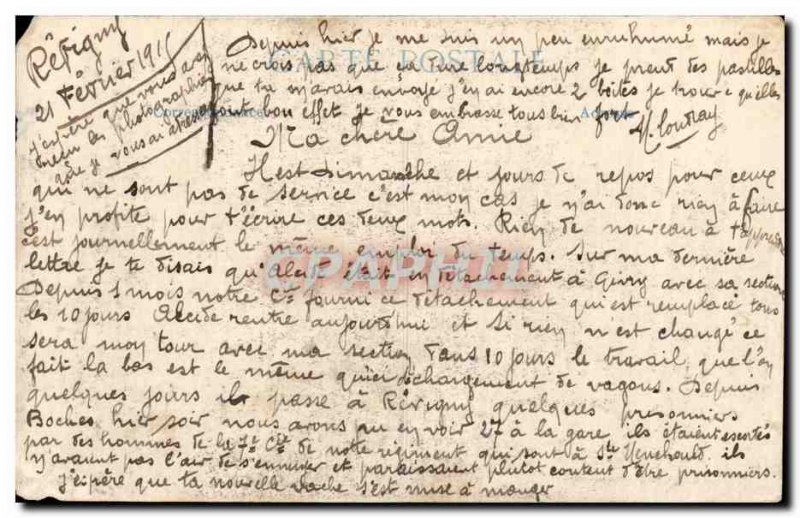 Révigny
21 Février 191
j'espère que vous avez
reçu les photographies
que je vous ai
Depuis hier je me suis un peu enrhumé mais je
ne crois pas que ça dure longtemps je prend des pastilles
que tu m'avais envoyé j'en ai encore 2 boites je trouve qu'elles
font bon effet je vous embrasse tous bien fort
CARTE POSTALE
Correspondance
Ma chère Amie
Il est Dimanche et jours de repos pour ceux
qui ne sont pas de service c'est mon cas je n'ai donc rien à faire
j'en profite pour t'écrire ces deux mots. Rien de nouveau à t'apprendre
c'est journellement le même emploi du temps. Sur ma dernière
lettre je te disais qu'Alcide était en détachement à Givry avec sa section
Depuis 1 mois notre Cie fourni ce détachement qui est remplacé tous
les 10 jours Alcide rentre aujourd'hui et si rien n'est changé ce
sera mon tour avec ma section dans 10 jours le travail que l'on
fait la bas est le même qu'ici déchargement de vagons. Depuis
quelques jours il passe à Révigny quelques prisonniers
Boches hier soir nous avons pu en voir 27 à la gare ils étaient escortés
par des hommes de la 7e Cie de notre régiment qui sont à Ste Menehould. ils
n'avaient pas l'air de s'ennuyer et paraissaient plutot content d'être prisonniers.
j'espère que ta nouvelle vache s'est mise à manger
CPAPHIL